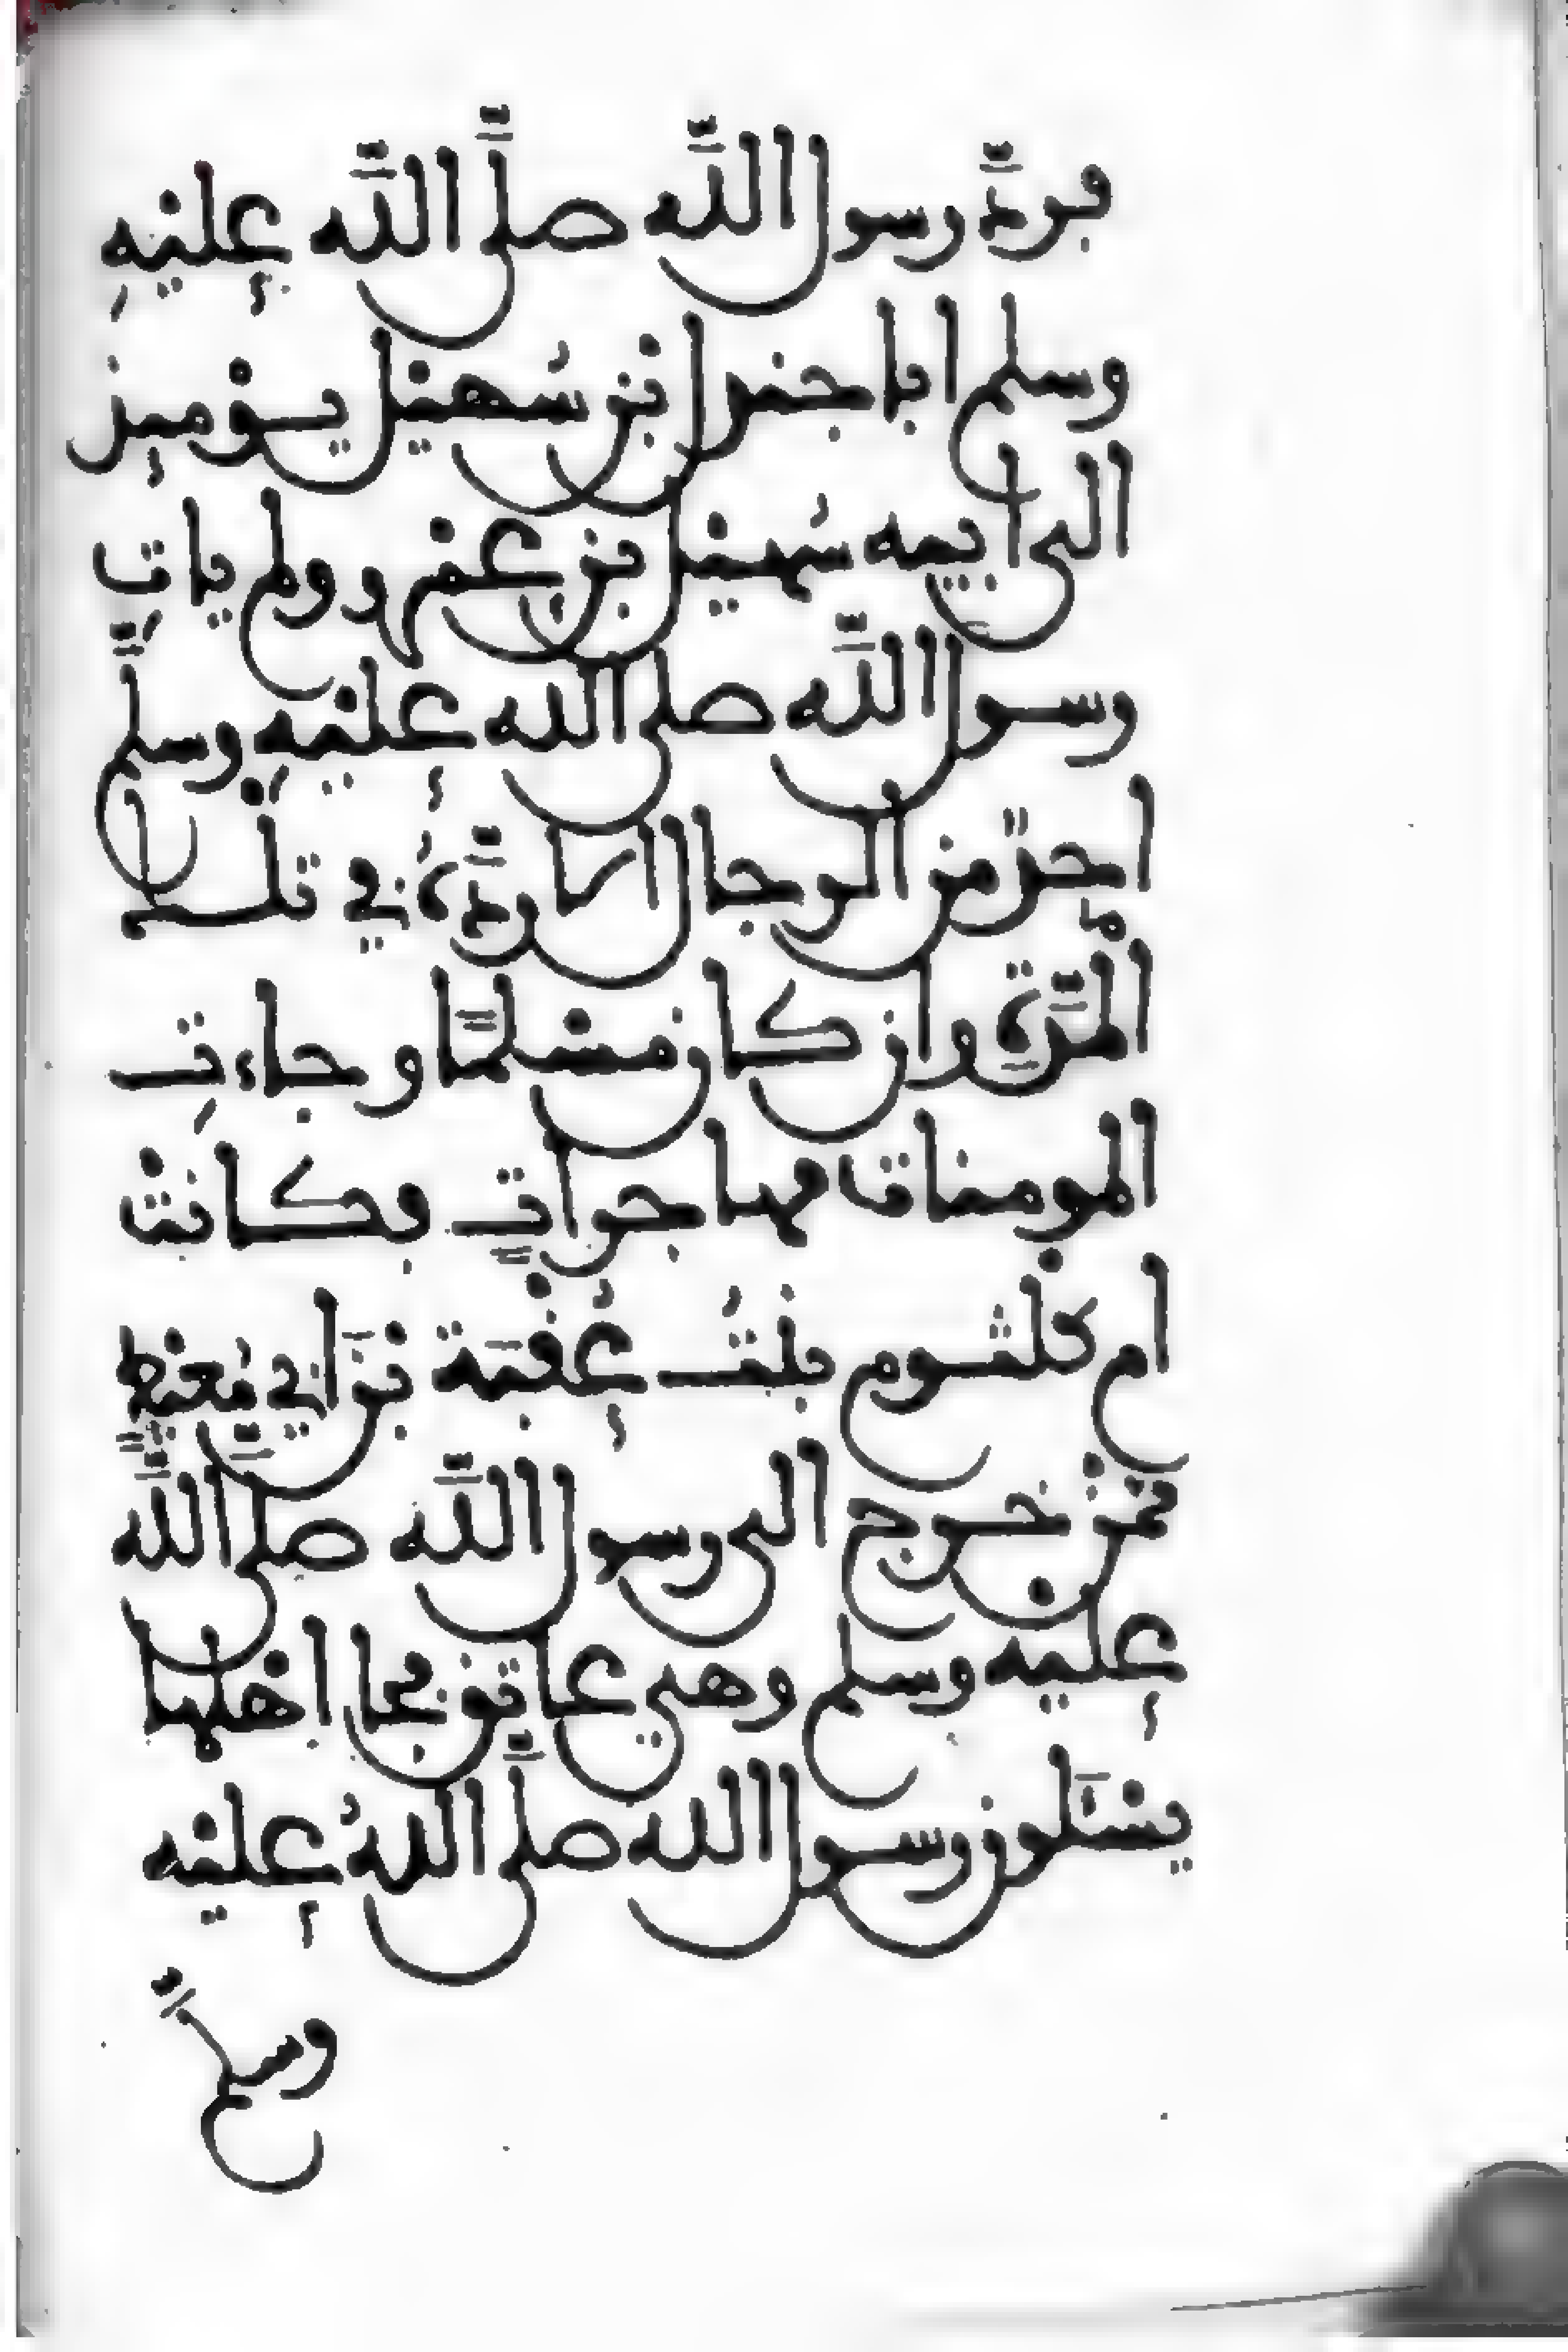 فردَّ رسول اللَّه صلَّى اللَّه عليْهِ
وسلم ابا جندل ابْن سُهيْل يوْميذ
الى ابيه سهيْل بْن عمْرو ولم ياتِ
رسول اللَّه صلى الله عليْهِ وسلمَّ
احدٌ من الرجال الا ردَّهُ في تلْك
المدَّة وان كان مسْلمًا وجاءتِ
المومنات مهاجراتٍ وكانتْ
ام كلْثوم بنْتُ عُقْبَة بْنَ ابي مُعيْطٍ
ممَّنْ خرج الى رسول اللَّه صلى اللَّه
عليْه وسلم وهي عاتق فجا اهْلها
يسْئَلون رسول الله صلَّى اللهُ عليْه
وسلمَّ